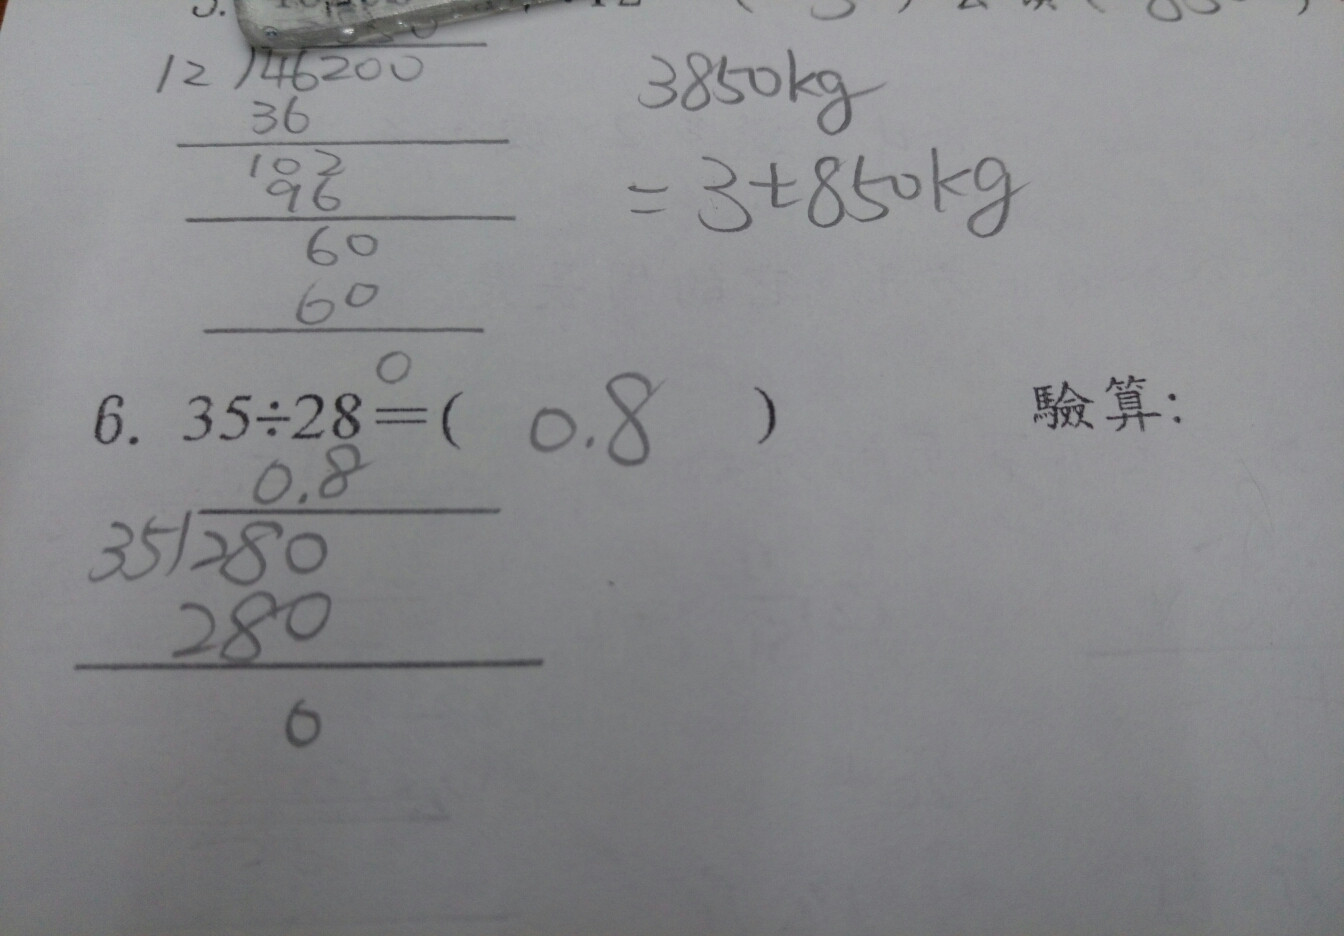 12)46200
36
102
96
60
60
0
3850kg
=3t850kg
6. 35÷28=( 0.8 ) 驗算:
0.8
35)280
280
0